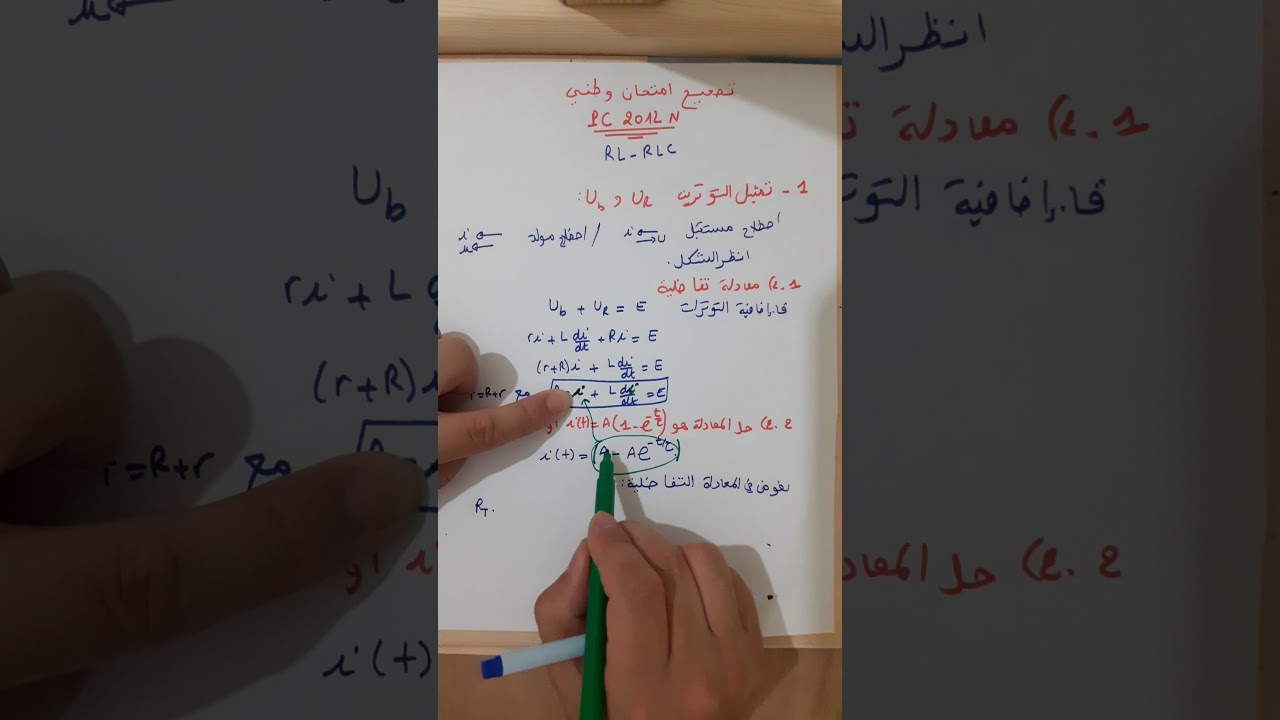 تصحيح امتحان وطني
PC 2012 N
RL - RLC
1 - تمثيل التوترين U_R و U_b :
اصطلاح مستقبل i u / اصطلاح مولد i u
انظر الشكل.
2.1) معادلة تفاضلية
ق. إضافية التوترات U_b + U_R = E
ri + L di/dt + Ri = E
(r+R)i + L di/dt = E
i + L di/dt = E مع r = R+r
2.2) حل المعادلة هو i(t) = A(1 - e^-t/τ) او
i(t) = (A - A e^-t/τ)
نعوض في المعادلة التفاضلية:
R_T.